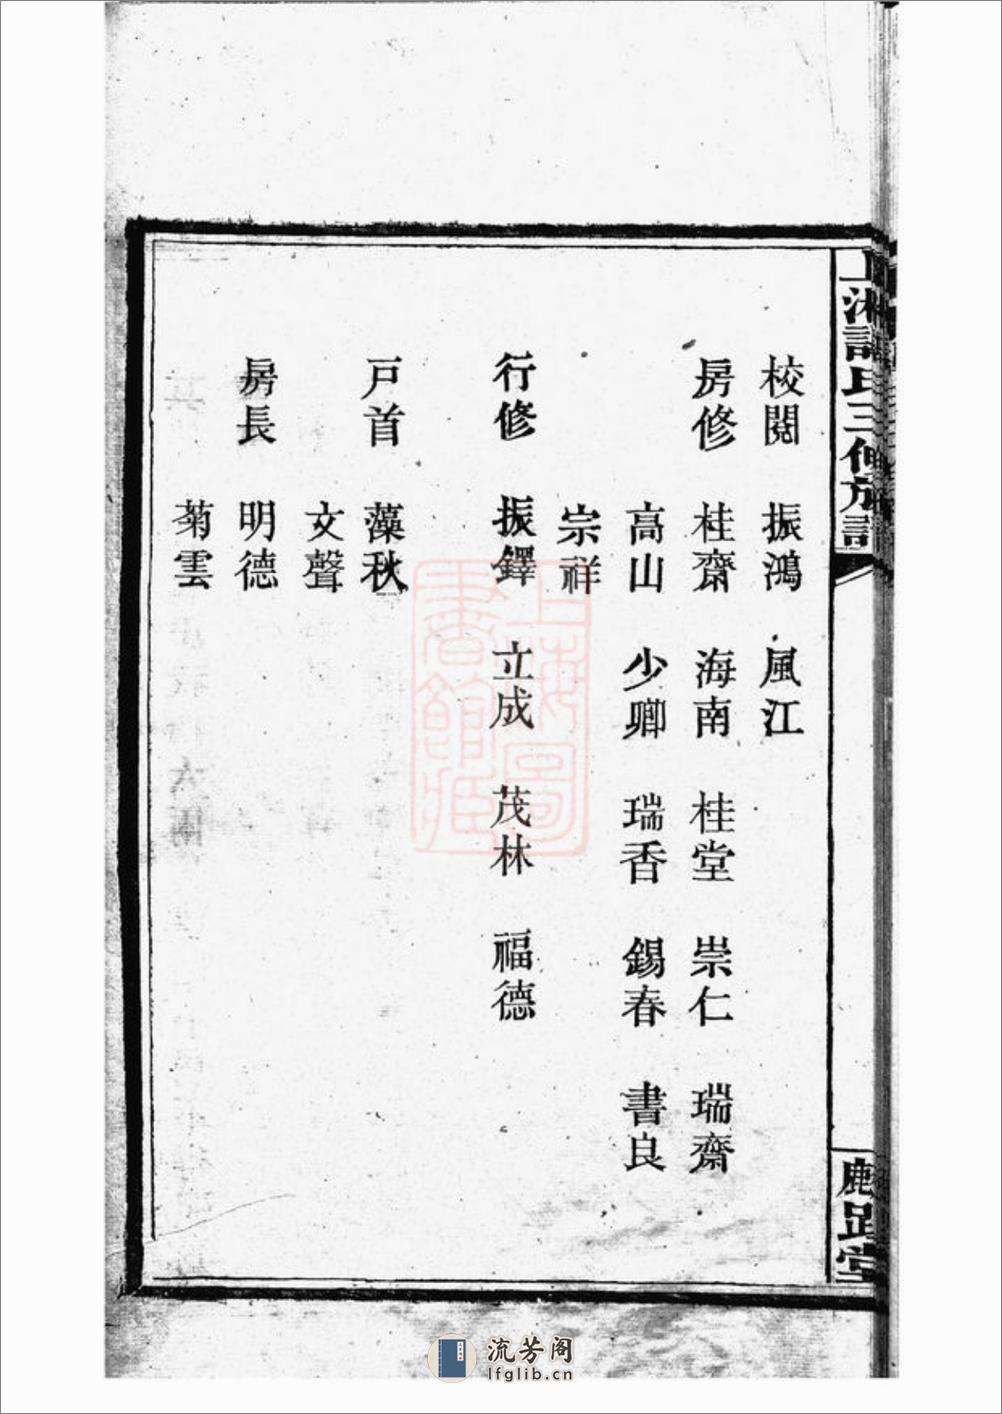 校閱 振鴻 風江
房修 桂齋 海南 桂堂 崇仁 瑞齋
高山 少卿 瑞香 錫春 書良
宗祥
行修 振鐸 立成 茂林 福德
戸首 藻秋
文聲
房長 明德
菊雲
上海圖書館藏
流芳阁
lfglib.cn